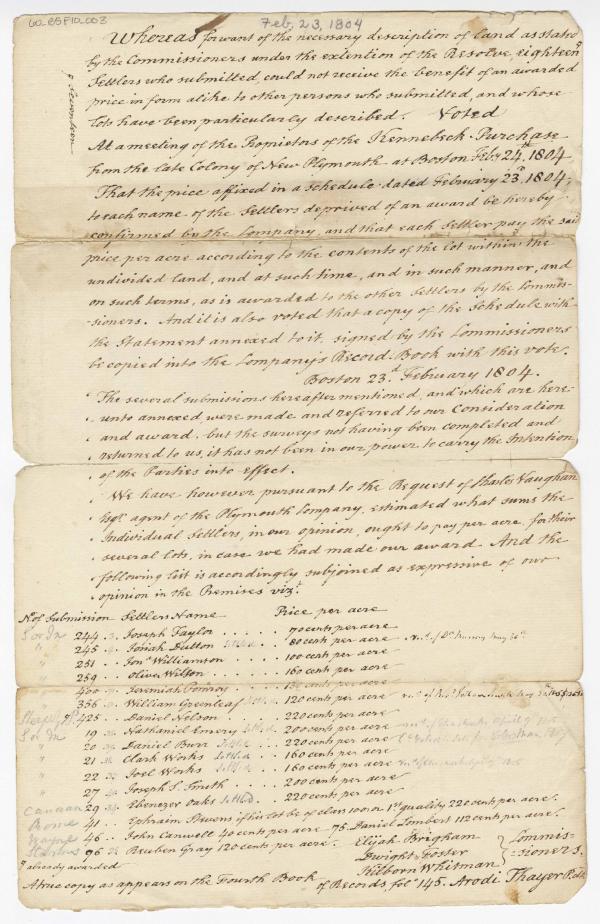 60_esf10_003
Feb, 23, 1804
Whereas for want of the necessary description of land as stated
by the Commissioners under the extention of the Resolve, eighteen
Settlers who submitted, could not receive the benefit of an awarded
price in form alike to other persons who submitted, and whose
lots have been particularly described. Voted
seventeen
At a meeting of the Propietors of the Kennebeck Purchase
from the late Colony of New Plymouth at Boston Feby 24th 1804
That the price affixed in a schedule dated February 23d, 1804,
to each name of the Settlers deprived of an award be hereby
confirmed by the Company, and that each Settler pay the said
price per acre according to the contents of the lot within the
undivided land, and at such time, and in such manner, and
on such terms, as is awarded to the other Settlers by the Commis-
-sioners. And it is also voted that a copy of the Schedule with
the Statement annexed to it, signed by the Commissioners
be copied into the Company's Record Book with this vote.
Boston 23d February 1804.
The several submissions hereafter mentioned, and which are here
unto annexed, were made and referred to our Consideration
and award, but the surveys not having been completed and
returned to us, it has not been in our power to carry the Intention
of the Parties into effect.
We have however pursuant to the Request of Charles Vaughan
Esqr agent of the Plymouth Company, estimated what sums the
Individual Settlers, in our opinion, ought to pay per acre for their
several lots, in case we had made our award And the
following list is accordingly subjoined as expressive of our
opinion in the Premises vizt
No. of Submission Settlers Name Price per acre
244 Joseph Taylor 70 cents per acre
245 Josiah Dutton Settled 80 cents per acre
251 Jona Williamson 100 cents per acre
259 Oliver Wilson 160 cents per acre
400 Jeremiah Pomroy cents per acre
356 William Greenleaf 120 cents per acre
425 Daniel Nelson 220 cents per acre
19 Nathaniel Emery Settled 200 cents per acre
20 Daniel Burr Settled 220 cents per acre
21 Clark Works Settled 160 cents per acre
22 Joel Works Settled 160 cents per acre
27 Joseph S. Smith 200 cents per acre
Canaan 29 Ebenezer Oaks Settled 220 cents per acre
Rome 41 Ephraim Stevens if his lot be of class 100 or 1st quality 220 cents per acre.
Wayne 46 John Canwell 40 cents per acre 75 Daniel Lombert 112 cents per acre.
Starks 96 Reuben Gray 120 cents per acre.
Elijah Brigham
Dwight Foster
Kilborn Whitman
Commis-
-sioners.
already awarded
A true copy as appears on the Fourth Book of Records folo 145. Arodi Thayer